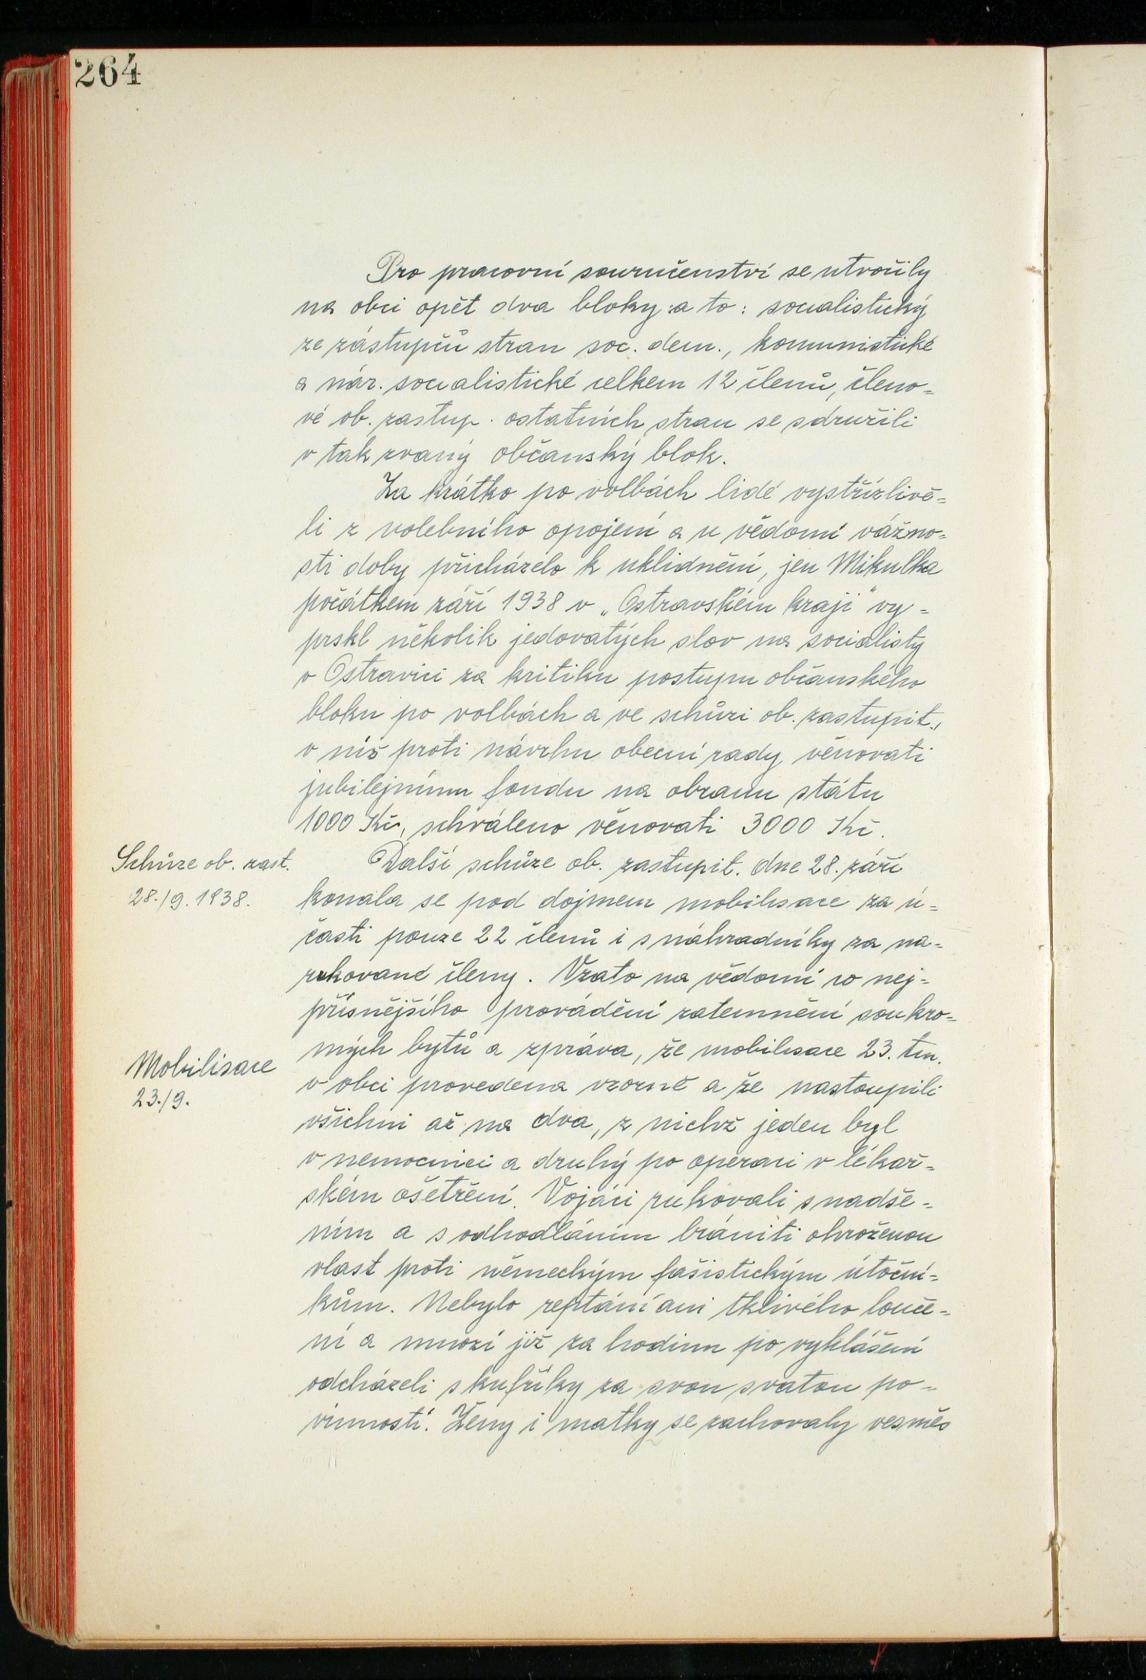 264
Pro pracovní souručenství se utvořily
na obci opět dva bloky a to: socialistický
ze zástupců stran soc. dem., komunistické
a nár. socialistické celkem 12 členů, členo-
vé ob. zastup. ostatních stran se sdružili
v tak zvaný občanský blok.
Za krátko po volbách lidé vystřízlivě-
li z volebního opojení a u vědomí vážno-
sti doby přicházelo k uklidnění, jen Mikulka
počátkem září 1938 v „Ostravském kraji" vy-
prskl několik jedovatých slov na socialisty
v Ostravici za kritiku postupu občanského
bloku po volbách a ve schůzi ob. zastupit.,
v níž proti návrhu obecní rady věnovati
jubilejnímu fondu na obranu státu
1000 Kč, schváleno věnovati 3000 Kč.
Schůze ob. zast.
28./9. 1938.
Další schůze ob. zastupit. dne 28. září
konala se pod dojmem mobilisace za ú-
časti pouze 22 členů i s náhradníky za na-
rukované členy. Vzato na vědomí co nej-
přísnějšího provádění zatemnění soukro-
mých bytů a zpráva, že mobilisace 23. tm.
Mobilisace
23./9.
v obci provedena vzorně a že nastoupili
všichni až na dva, z nichž jeden byl
v nemocnici a druhý po operaci v lékař-
ském ošetření. Vojáci rukovali s nadše-
ním a s odhodláním brániti ohroženou
vlast proti německým fašistickým útoční-
kům. Nebylo reptání ani tklivého louče-
ní a mnozí již za hodinu po vyhlášení
odcházeli s kufříky za svou svatou po-
vinností. Ženy i matky se zachovaly vesměs